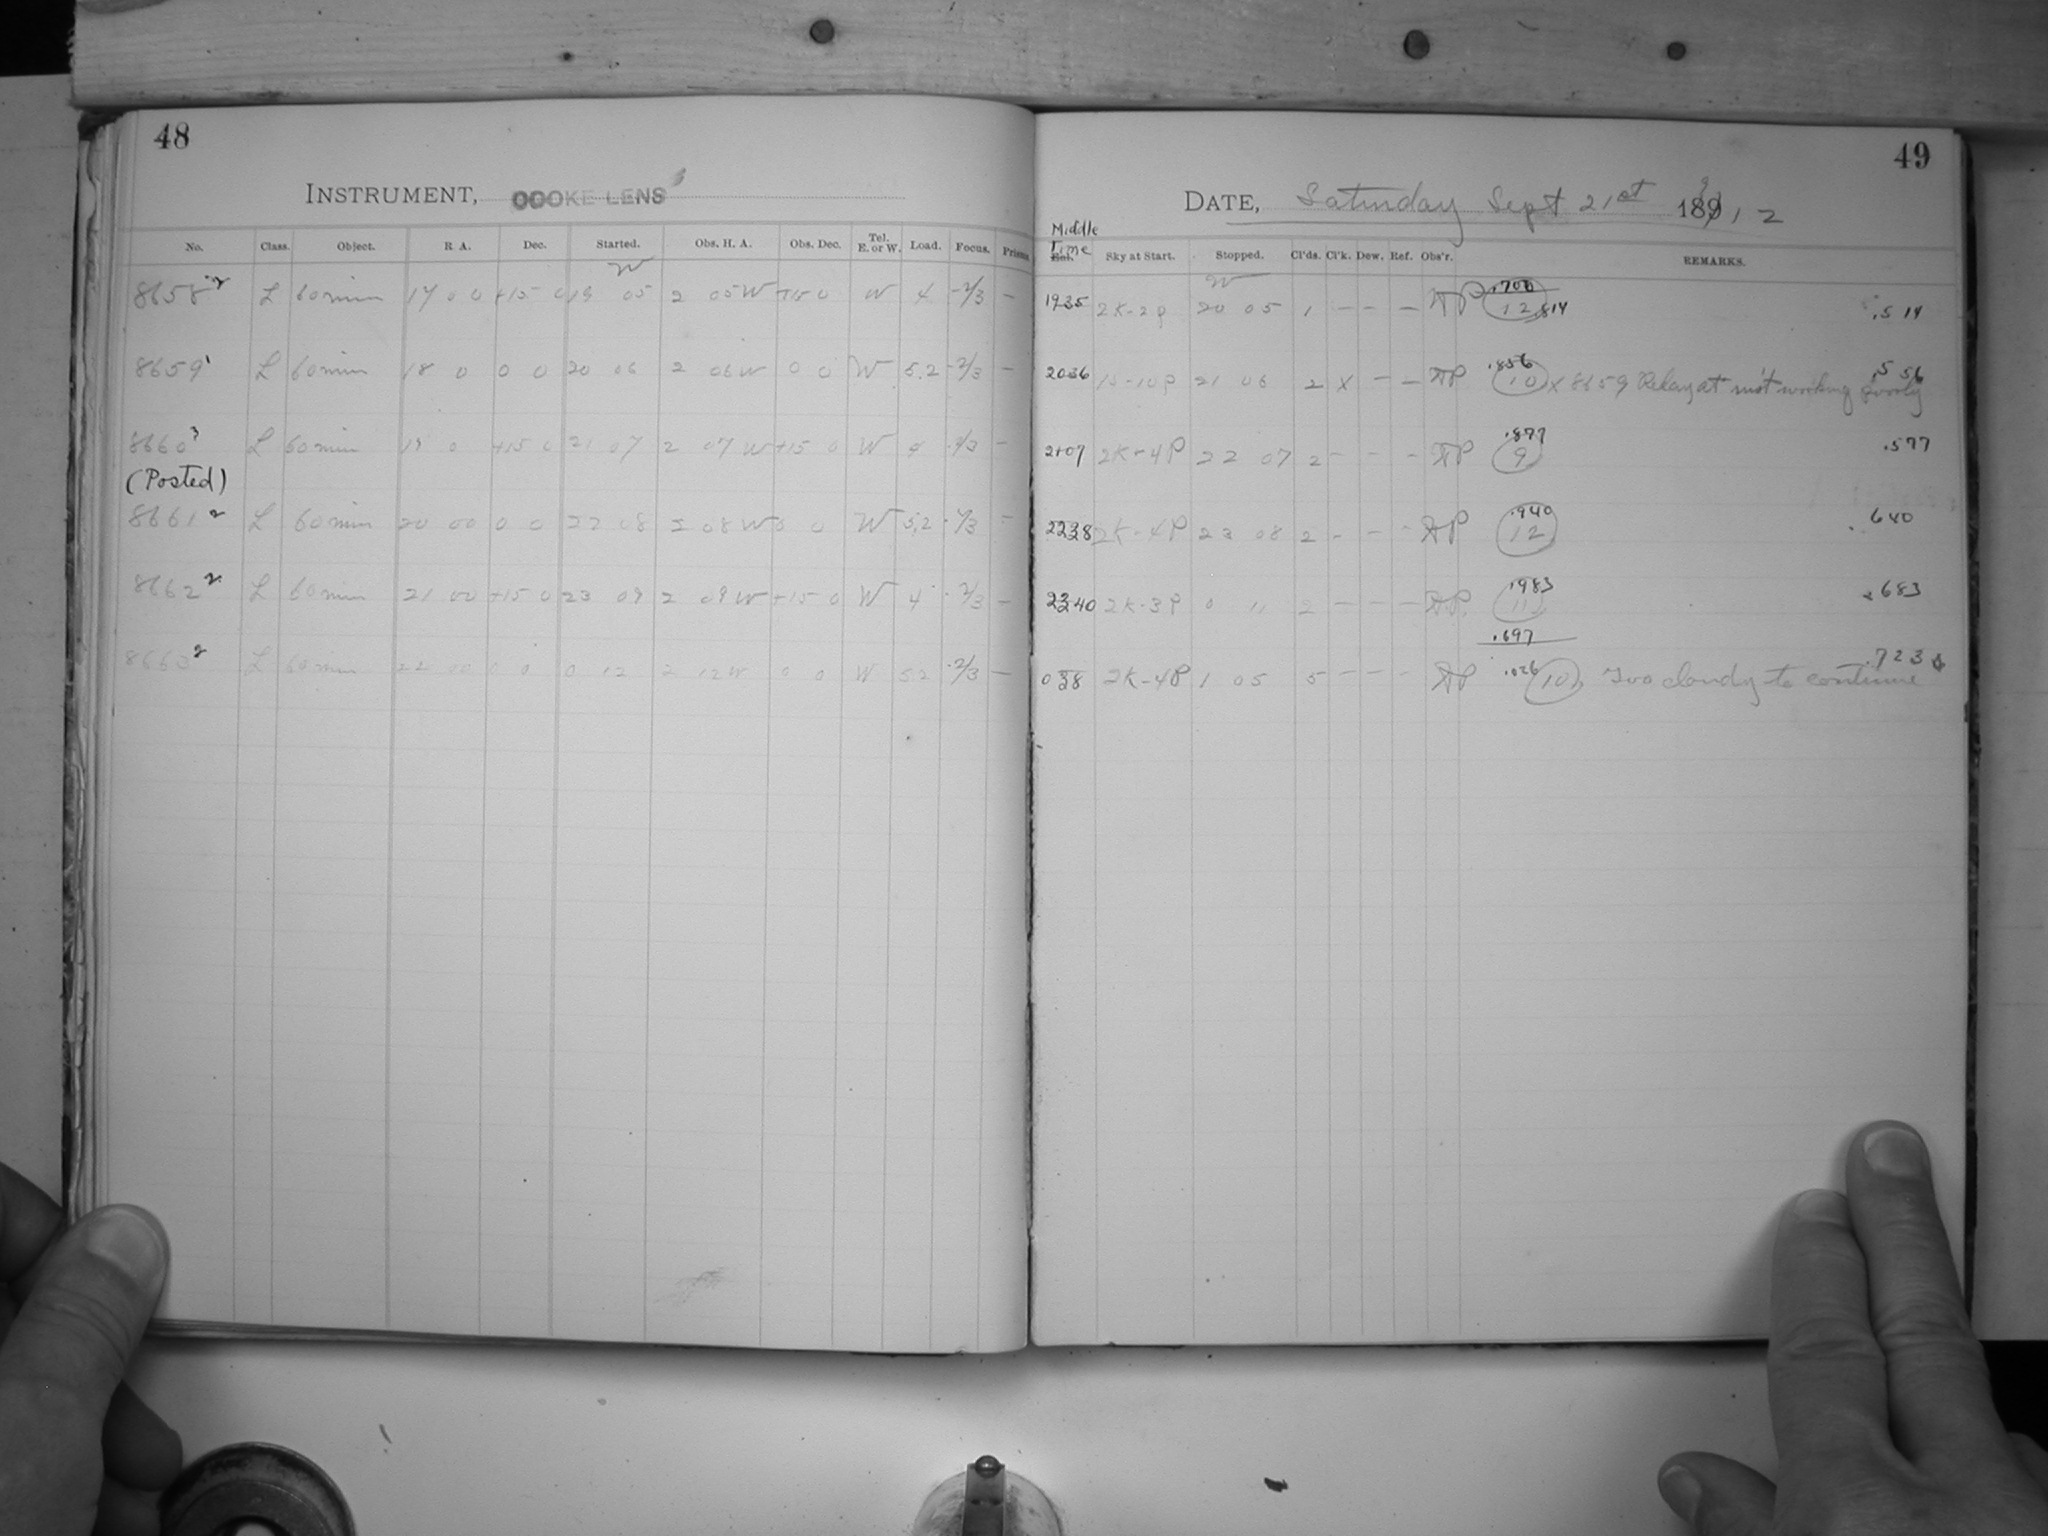 48
INSTRUMENT, COOKE LENS
No. Class. Object. R. A. Dec. Started. Obs. H. A. Obs. Dec. Tel. E. or W. Load. Focus. Prisms.
W
8658 2 L 60 min 17 0 0 +15 0 19 05 2 05 W +15 0 W 4 -2/3 —
8659 1 L 60 min 18 0 0 0 20 06 2 06 W 0 0 W 5.2 -2/3 —
8660 3 L 60 min 19 0 +15 0 21 07 2 07 W +15 0 W 4 -2/3 —
(Posted)
8661 2 L 60 min 20 00 0 0 22 08 2 08 W 0 0 W 5.2 -2/3 —
8662 2 L 60 min 21 00 +15 0 23 09 2 09 W +15 0 W 4 -2/3 —
8663 2 L 60 min 22 00 0 0 0 12 2 12 W 0 0 W 5.2 -2/3 —
49
DATE, Saturday Sept 21st 1912
Middle Time
Sky at Start. Stopped. Cl'ds. Cl'k. Dew. Ref. Obs'r. REMARKS.
W
.700
1935 2K-2P 20 05 1 — — — 12 .814 .514
.856 .556
2036 15-10P 21 06 2 X — — 10 X 8659 Relay at not working
.877 .577
2107 2K-4P 22 07 2 — — — 9
.940 .640
2238 2K-4P 23 08 2 — — — 12
.983 .683
2340 2K-3P 0 11 2 — — — 11
.697
.723
038 2K-4P 1 05 5 — — — .026 10 Too cloudy to continue